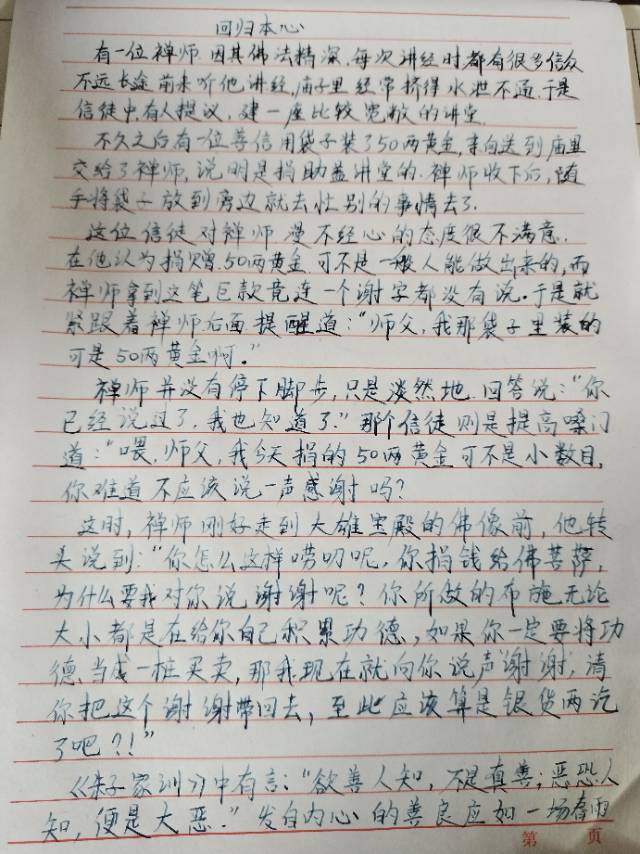 回归本心
有一位禅师因其佛法精深,每次讲经时都有很多信众
不远长途前来听他讲经,庙子里经常挤得水泄不通.于是
信徒中有人提议,建一座比较宽敞的讲堂.
不久之后有一位善信用袋子装了50两黄金,亲自送到庙里
交给了禅师,说明是捐助盖讲堂的.禅师收下后,随
手将袋子放到旁边就去忙别的事情去了.
这位信徒对禅师漫不经心的态度很不满意.
在他认为捐赠50两黄金可不是一般人能做出来的,而
禅师拿到这笔巨款竟连一个谢字都没有说.于是就
紧跟着禅师后面提醒道:“师父,我那袋子里装的
可是50两黄金啊."
禅师并没有停下脚步,只是淡然地回答说:“你
已经说过了,我也知道了."那个信徒则是提高嗓门
道:“喂,师父,我今天捐的50两黄金可不是小数目,
你难道不应该说一声感谢吗?
这时,禅师刚好走到大雄宝殿的佛像前,他转
头说到:“你怎么这样唠叨呢,你捐钱给佛菩萨,
为什么要我对你说谢谢呢?你所做的布施无论
大小都是在给你自己积累功德,如果你一定要将功
德当成一桩买卖,那我现在就向你说声谢谢,请
你把这个谢谢带回去,至此应该算是银货两讫
了吧?!"
《朱子家训》中有言:“欲善人知,不是真善;恶恐人
知,便是大恶."发自内心的善良应如一场春雨
第 页